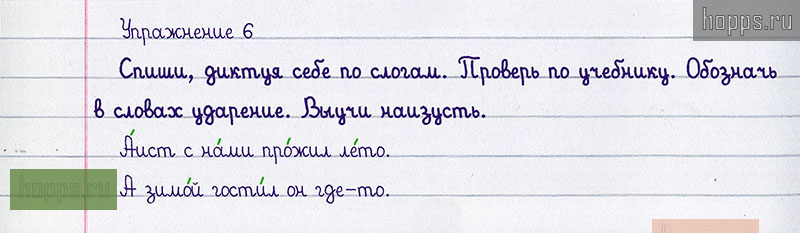 hopps.ru
Упражнение 6
Спиши, диктуя себе по слогам. Проверь по учебнику. Обозначь
в словах ударение. Выучи наизусть.
А́ист с на́ми про́жил ле́то.
hopps.ru
А зимо́й гости́л он где-то.